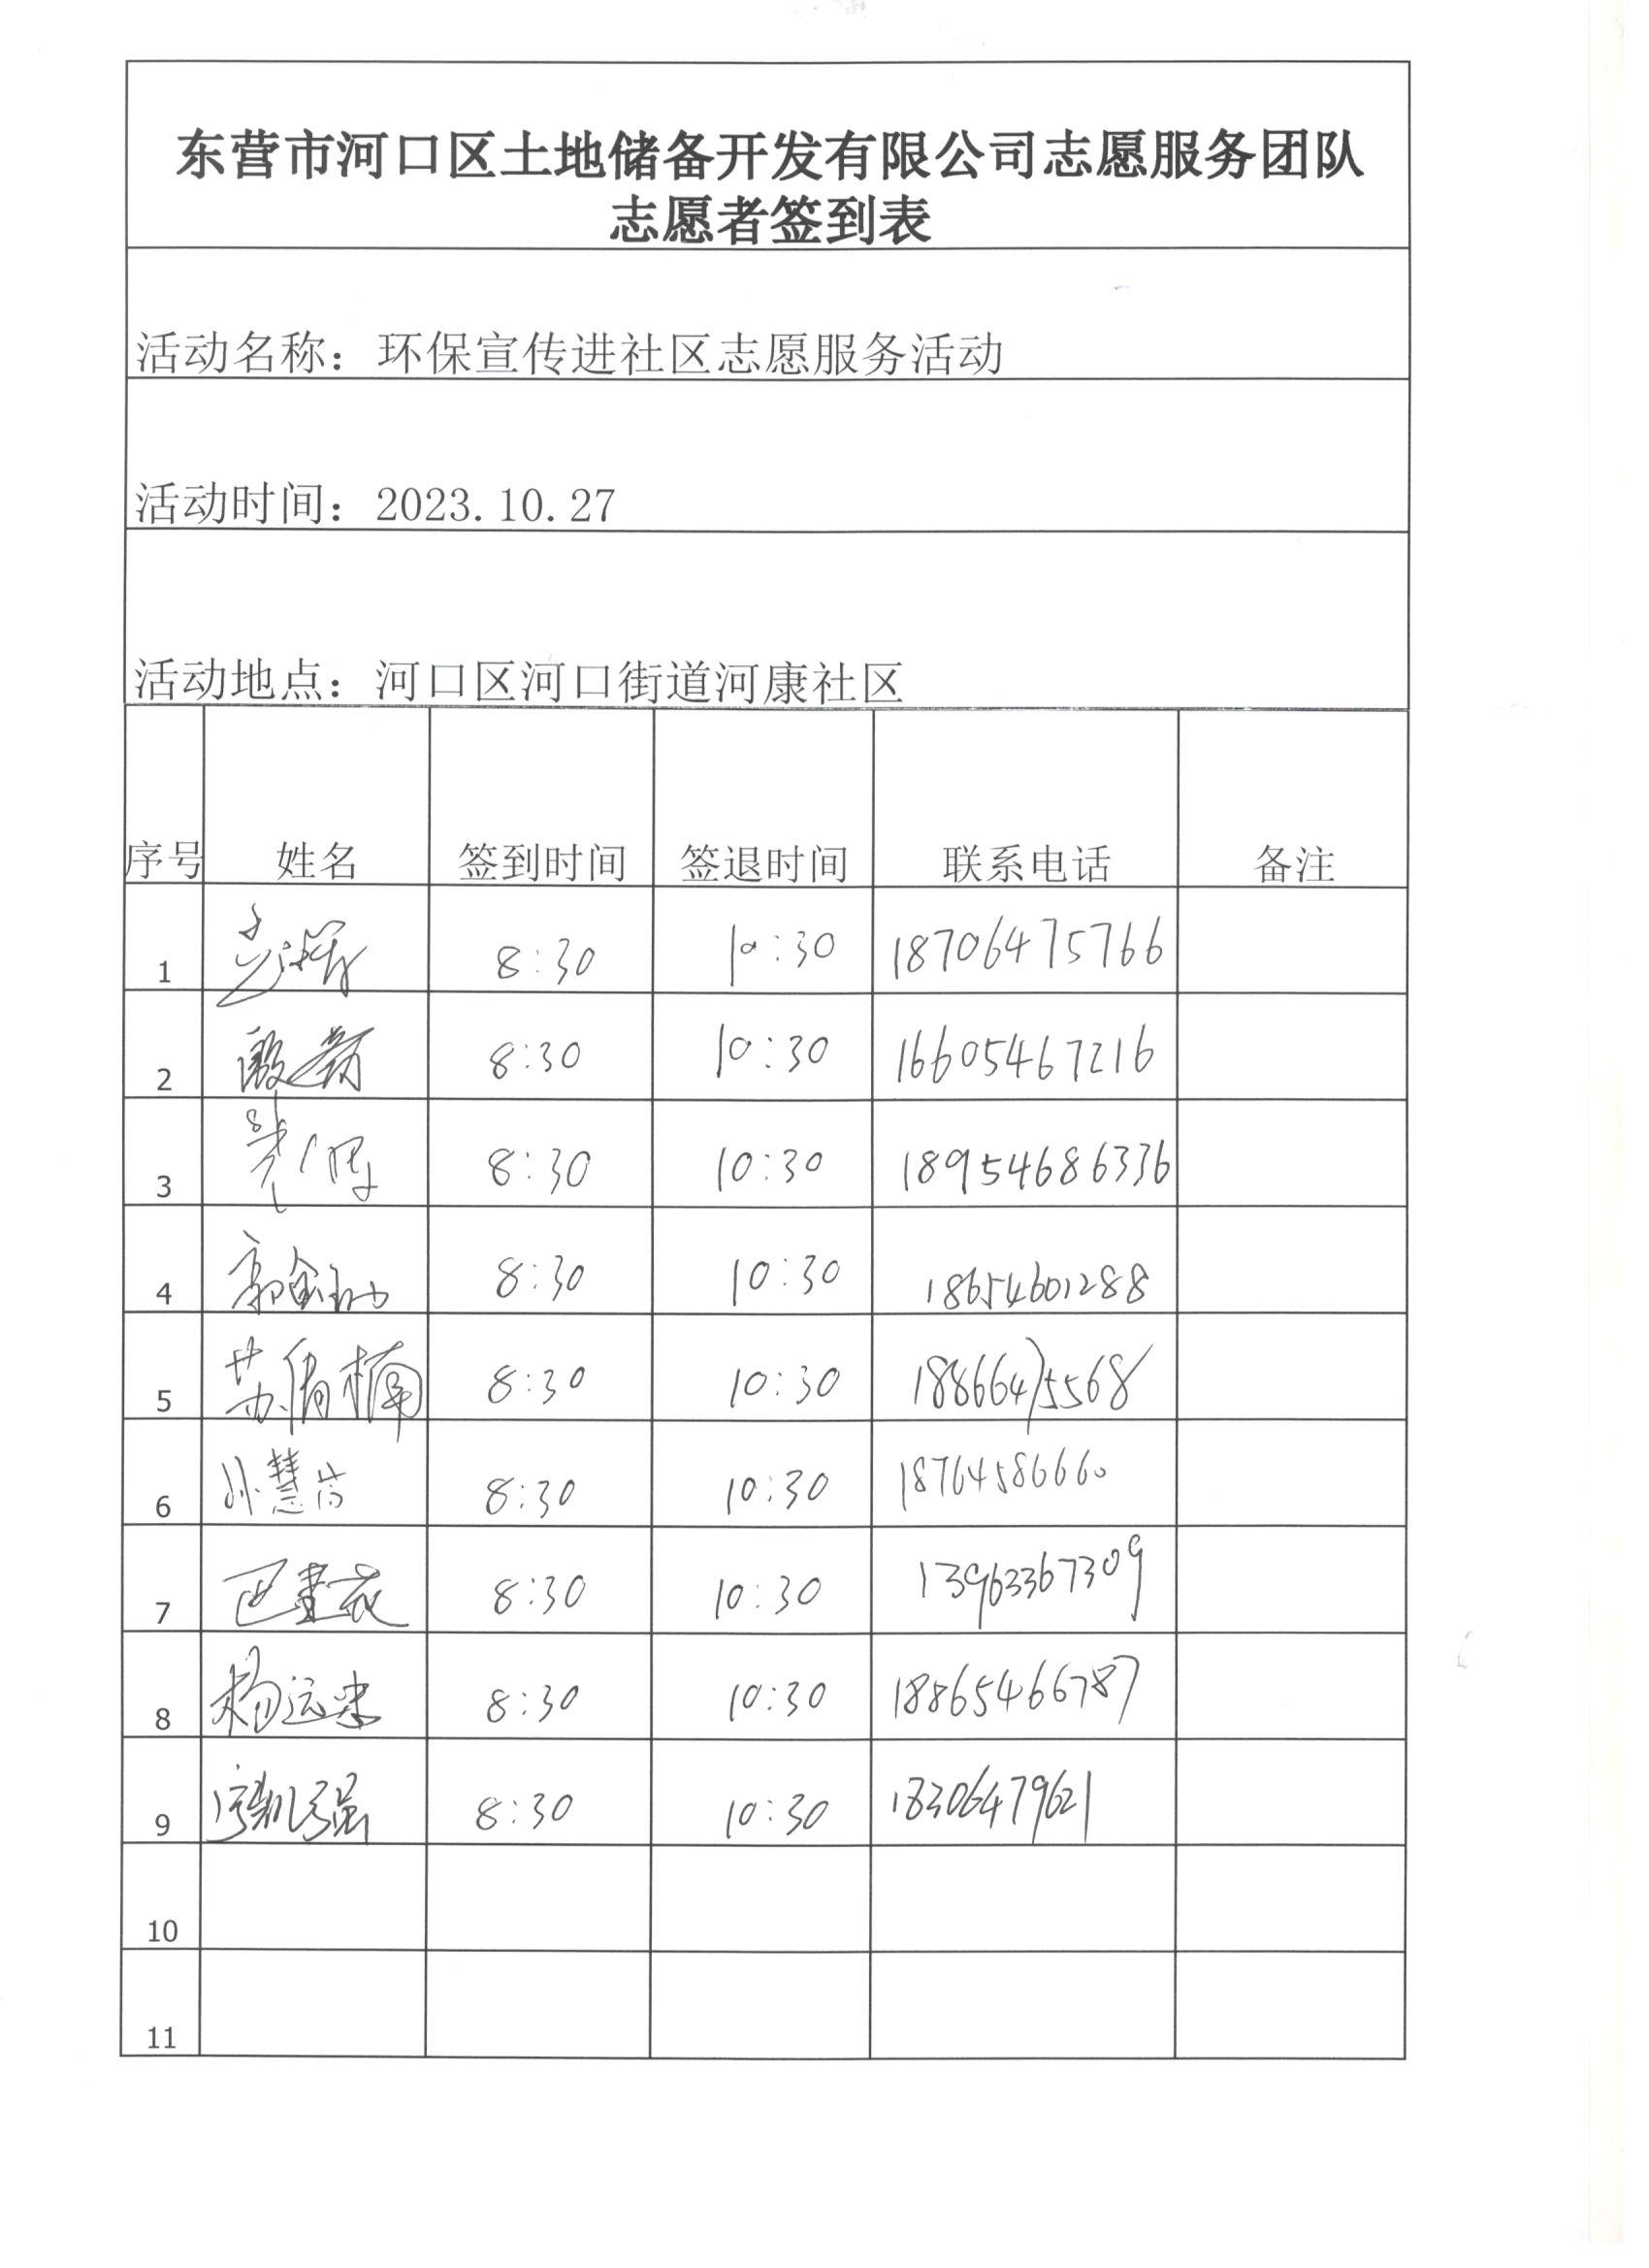 东营市河口区土地储备开发有限公司志愿服务团队
志愿者签到表
活动名称：环保宣传进社区志愿服务活动
活动时间：2023.10.27
活动地点：河口区河口街道河康社区
序号 姓名 签到时间 签退时间 联系电话 备注
1 8:30 10:30 18706475766
2 8:30 10:30 16605467216
3 8:30 10:30 18954686336
4 8:30 10:30 18654601288
5 苏倩楠 8:30 10:30 18866475568
6 8:30 10:30 18764586660
7 8:30 10:30 13963367309
8 杨运忠 8:30 10:30 18865466787
9 8:30 10:30 18306479621
10
11